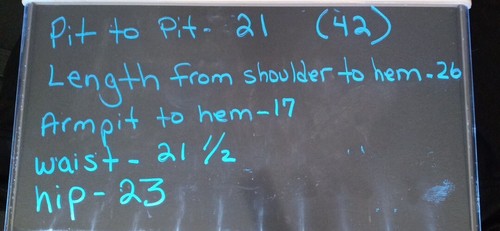 Pit to Pit- 21 (42)
Length from shoulder to hem-26
Armpit to hem-17
waist- 21 1/2
hip-23